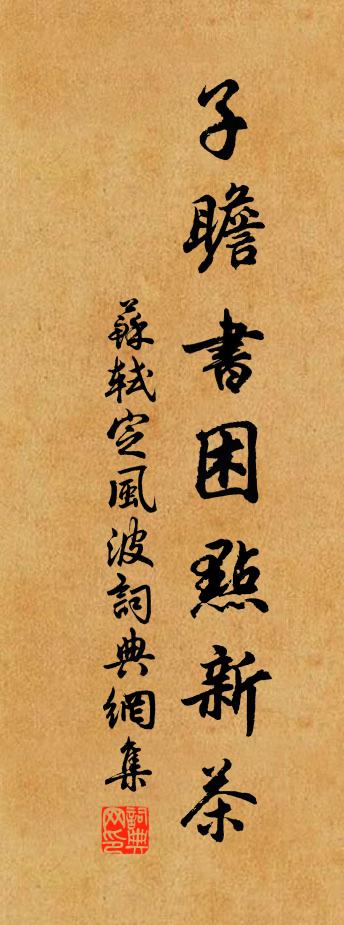 子瞻書困點新茶
蘇軾定風波詞典網集
詞典网印